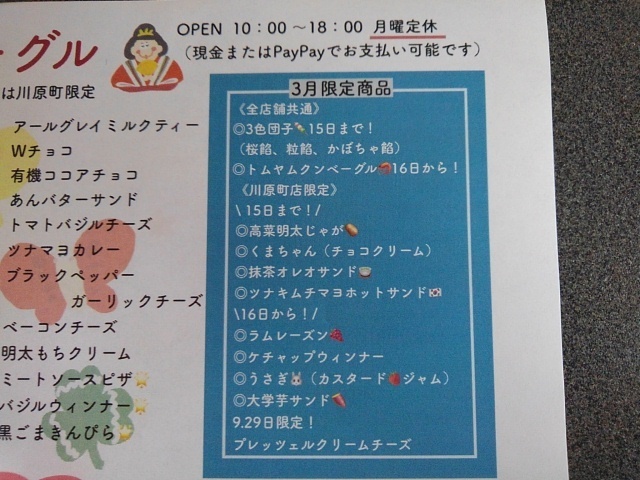 OPEN 10:00～18:00 月曜定休
（現金またはPayPayでお支払い可能です）
グル
は川原町限定
アールグレイミルクティー
Wチョコ
有機ココアチョコ
あんバターサンド
トマトバジルチーズ
ツナマヨカレー
ブラックペッパー
ガーリックチーズ
ベーコンチーズ
明太もちクリーム
ミートソースピザ
バジルウィンナー
黒ごまきんぴら
3月限定商品
《全店舗共通》
◎3色団子🍡15日まで！
（桜餡、粒餡、かぼちゃ餡）
◎トムヤムクンベーグル🦐16日から！
《川原町店限定》
\15日まで！/
◎高菜明太じゃが🥔
◎くまちゃん（チョコクリーム）
◎抹茶オレオサンド🍵
◎ツナキムチマヨホットサンド🇰🇷
\16日から！/
◎ラムレーズン🍇
◎ケチャップウィンナー
◎うさぎ🐰（カスタード🍓ジャム）
◎大学芋サンド🍠
9.29日限定！
プレッツェルクリームチーズ